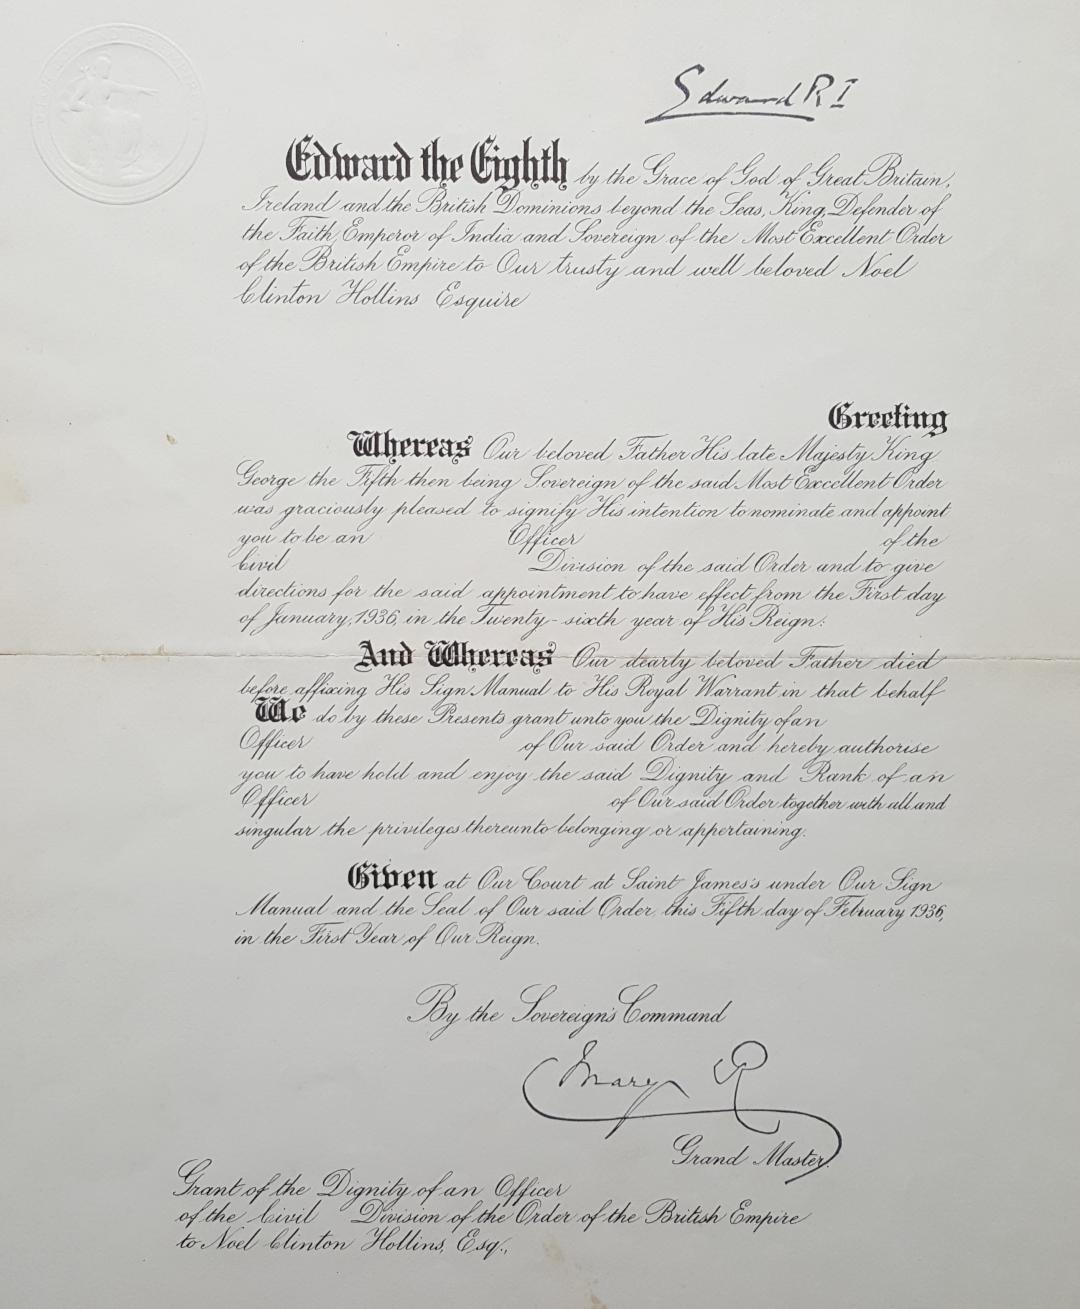 Edward R I
Edward the Eighth by the Grace of God of Great Britain,
Ireland and the British Dominions beyond the Seas, King, Defender of
the Faith, Emperor of India and Sovereign of the Most Excellent Order
of the British Empire to Our trusty and well beloved Noel
Clinton Hollins Esquire
Greeting
Whereas Our beloved Father His late Majesty King
George the Fifth then being Sovereign of the said Most Excellent Order
was graciously pleased to signify His intention to nominate and appoint
you to be an Officer of the
Civil Division of the said Order and to give
directions for the said appointment to have effect from the First day
of January, 1936, in the Twenty-sixth year of His Reign:
And Whereas Our dearly beloved Father died
before affixing His Sign Manual to His Royal Warrant in that behalf
We do by these Presents grant unto you the Dignity of an
Officer of Our said Order and hereby authorise
you to have hold and enjoy the said Dignity and Rank of an
Officer of Our said Order together with all and
singular the privileges thereunto belonging or appertaining.
Given at Our Court at Saint James's under Our Sign
Manual and the Seal of Our said Order, this Fifth day of February 1936,
in the First Year of Our Reign.
By the Sovereign's Command
Mary R
Grand Master.
Grant of the Dignity of an Officer
of the Civil Division of the Order of the British Empire
to Noel Clinton Hollins, Esq.,